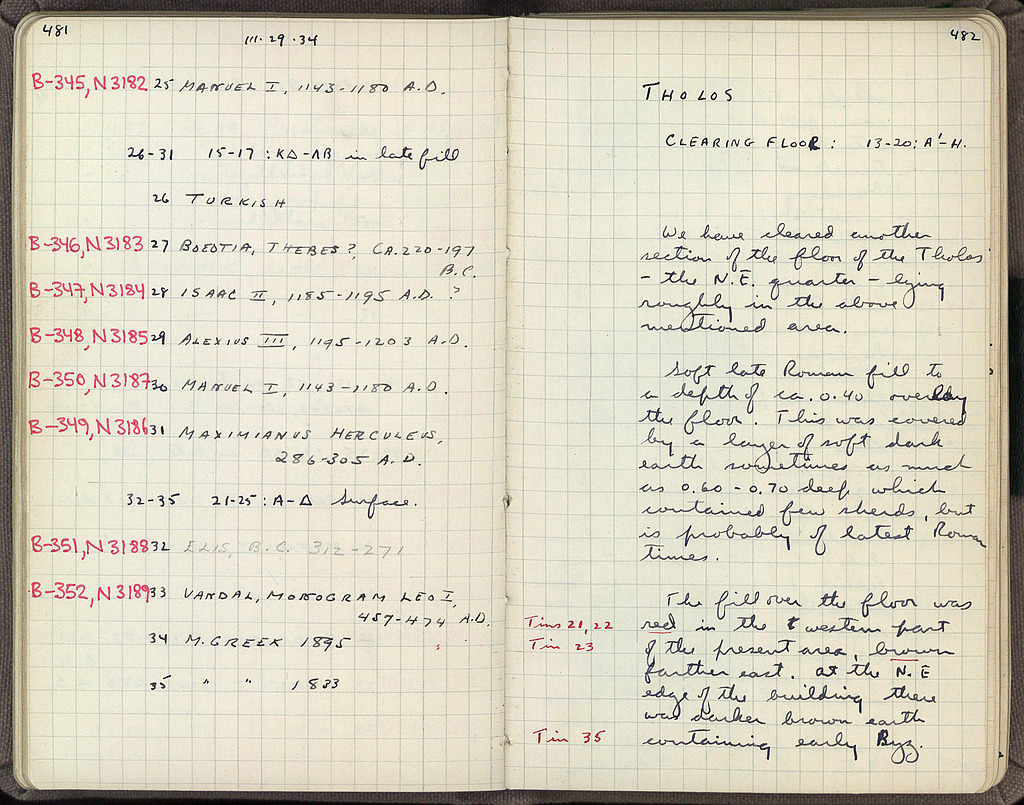 481
III·29·34
B-345, N3182 25 MANUEL I, 1143-1180 A.D.
26-31 15-17 : ΚΔ-ΛΒ in late fill
26 TURKISH
B-346, N3183 27 BOEOTIA, THEBES?, CA. 220-197
B.C.
B-347, N3184 28 ISAAC II, 1185-1195 A.D. ?
B-348, N3185 29 ALEXIUS III, 1195-1203 A.D.
B-350, N3187 30 MANUEL I, 1143-1180 A.D.
B-349, N3186 31 MAXIMIANUS HERCULEUS,
286-305 A.D.
32-35 21-25 : Α-Δ Surface.
B-351, N3188 32 ELIS, B.C. 312-271
B-352, N3189 33 VANDAL, MONOGRAM LEO I,
457-474 A.D.
34 M. GREEK 1895
35 " " 1833
482
THOLOS
CLEARING FLOOR : 13-20 : A'-H.
We have cleared another
section of the floor of the Tholos
- the N.E. quarter - lying
roughly in the above
mentioned area.
Soft late Roman fill to
a depth of ca. 0.40 overlay
the floor. This was covered
by a layer of soft dark
earth sometimes as much
as 0.60 - 0.70 deep which
contained few sherds, but
is probably of latest Roman
times.
The fill over the floor was
Tins 21, 22 red in the western part
Tin 23 of the present area, brown
farther east. At the N.E
edge of the building there
was darker brown earth
Tin 35 containing early Byz.